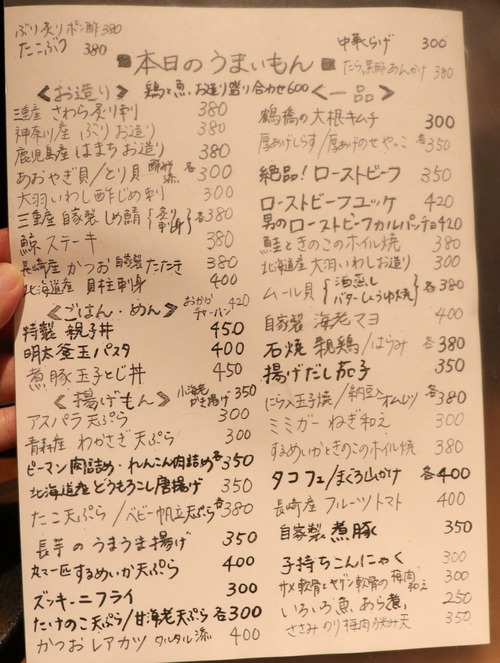 ぶり炙りポン酢 380
たこぶつ 380
中華くらげ 300
本日のうまいもん
たら黒酢あんかけ 380
《お造り》 鶏と魚、お造り盛り合わせ600
三重産 さわら炙り刺 380
神奈川産 ぶりお造り 380
鹿児島産 はまちお造り 380
あおやぎ貝/とり貝 各300
大羽いわし酢じめ刺 300
三重産 自家製しめ鯖{炙り 刺身}各380
鯨ステーキ 380
長崎産 かつお自家製たたき 380
北海道産 貝柱刺身 400
《ごはん・めん》 おかかチャーハン 420
特製 親子丼 450
明太釜玉パスタ 400
煮豚玉子とじ丼 450
《揚げもん》 小海老かき揚げ 350
アスパラ天ぷら 300
青森産 わかさぎ天ぷら 300
ピーマン肉詰め・れんこん肉詰め各350
北海道産どうもろこし唐揚げ 350
たこ天ぷら/ベビー帆立天ぷら各380
長芋のうまうま揚げ 350
丸マ一匹するめいか天ぷら 400
ズッキーニフライ 300
たけのこ天ぷら/甘海老天ぷら 各300
かつおレアカツ タルタル添 400
《一品》
鶴橋の大根キムチ 300
厚あげしらす/厚あげのせやっこ 各350
絶品!ローストビーフ 350
ローストビーフユッケ 420
男のローストビーフカルパッチョ420
鮭ときのこのホイル焼 380
北海道産大羽いわしお造り 300
ムール貝{酒蒸し バターしょうゆ焼}各380
自家製 海老マヨ 400
石焼 親鶏/はらみ 各380
揚げだし茄子 350
にら入玉子焼/納豆入オムレツ 各380
ミミガーねぎ和え 300
するめいかときのこのホイル焼 380
タコフェ/まぐろ山かけ 各400
長崎産 フルーツトマト 400
自家製 煮豚 350
子持ちこんにゃく 300
サメ軟骨とヤゲン軟骨の梅肉和え 300
いろいろ魚、あら煮、 250
ささみのり梅肉挟み天 350